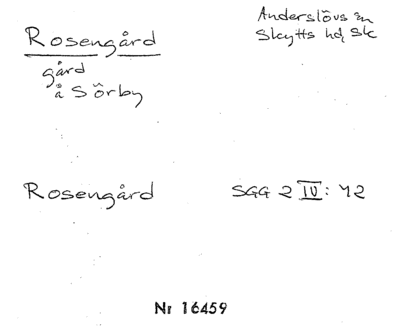 Rosengård
gård
å Sörby
Anderslövs sn
Skytts hd, Sk
Rosengård
SGG 2 IV: 42
Nr 16459